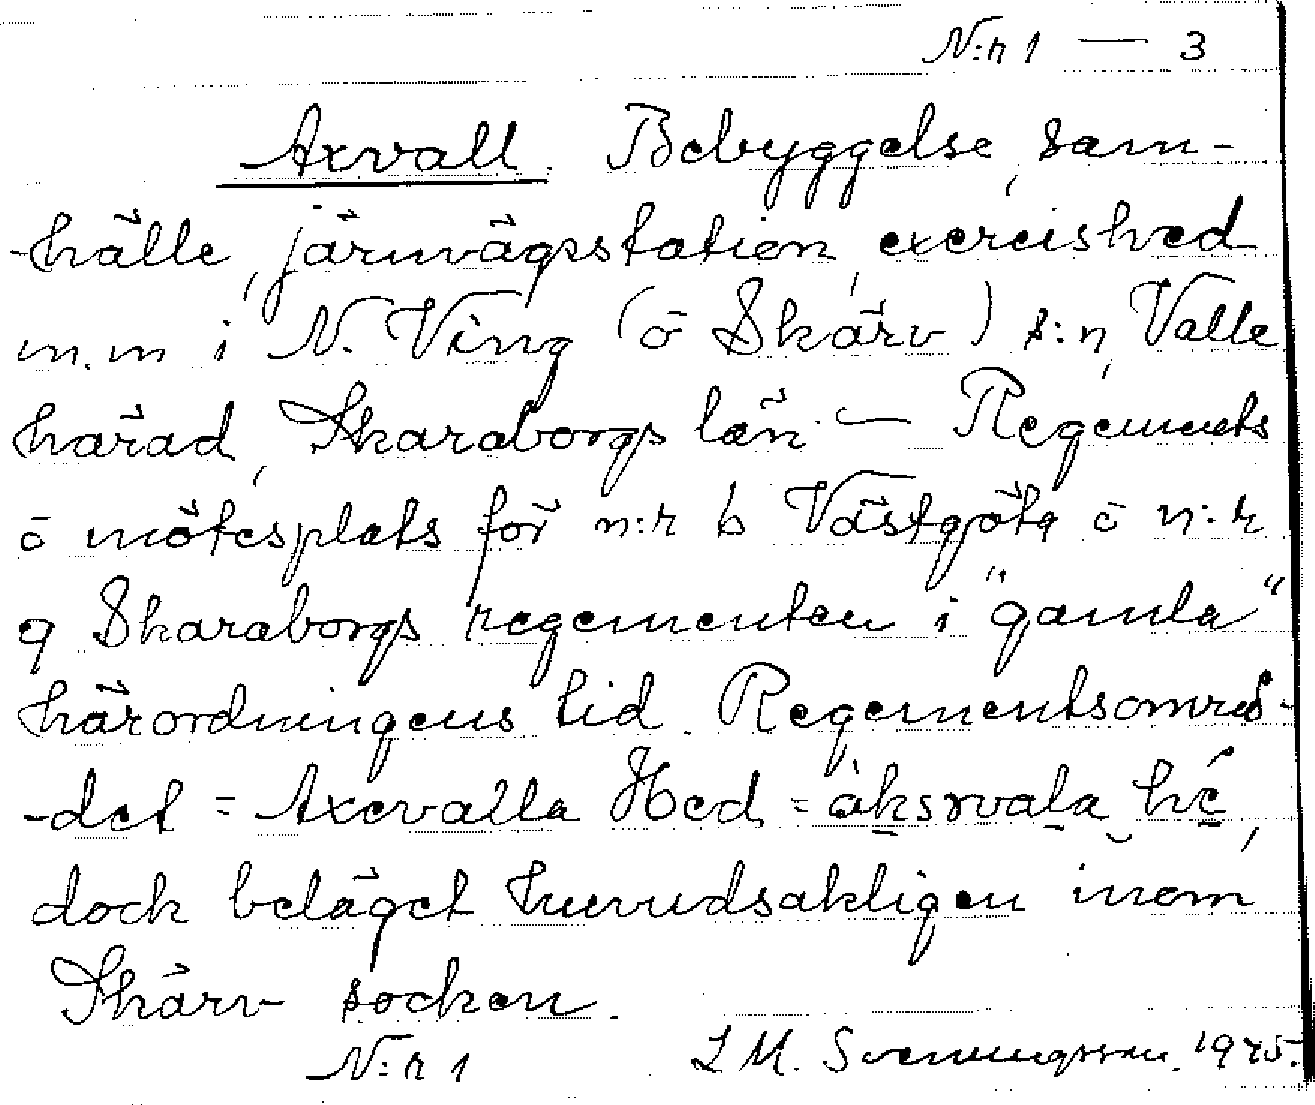 N:r 1 — 3
Axvall. Bebyggelse, sam-
-hälle, järnvägsstation, exercished
m.m i N. Ving (o Skärv) s:n, Valle
härad, Skaraborgs län — Regements
o mötesplats för n:r 6 Västgöta o n:r
9 Skaraborgs regementen i "gamla"
härordningens tid. Regementsområ-
-det = Axevalla Hed = àksrvala hé,
dock beläget huvudsakligen inom
Skärv socken.
N:r 1 L M. Svenningsson. 1945.